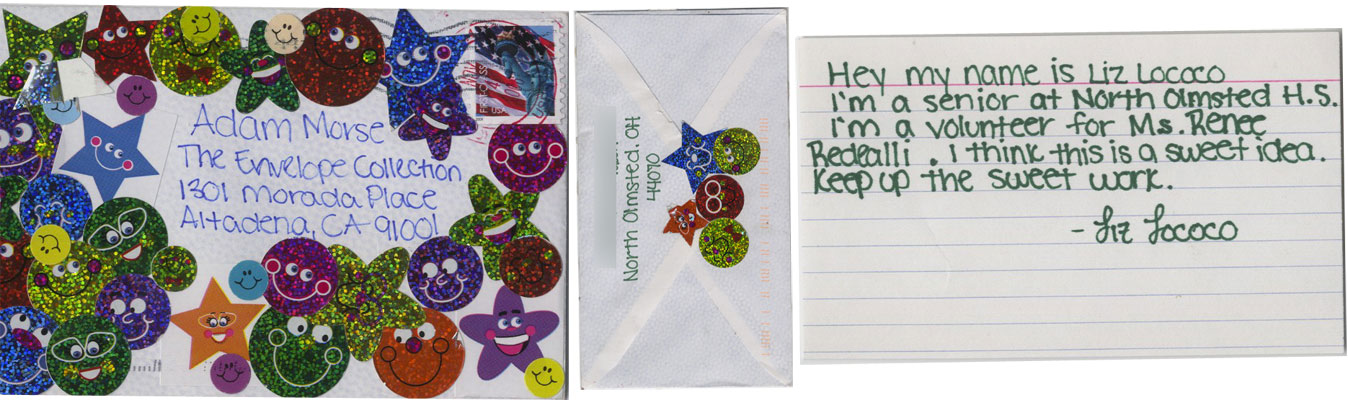 Adam Morse
The Envelope Collection
1301 Morada Place
Altadena, CA 91001
North Olmsted, OH
44070
Hey my name is Liz Lococo
I'm a senior at North Olmsted H.S.
I'm a volunteer for Ms. Renee
Redealli. I think this is a sweet idea.
Keep up the sweet work.
- Liz Lococo